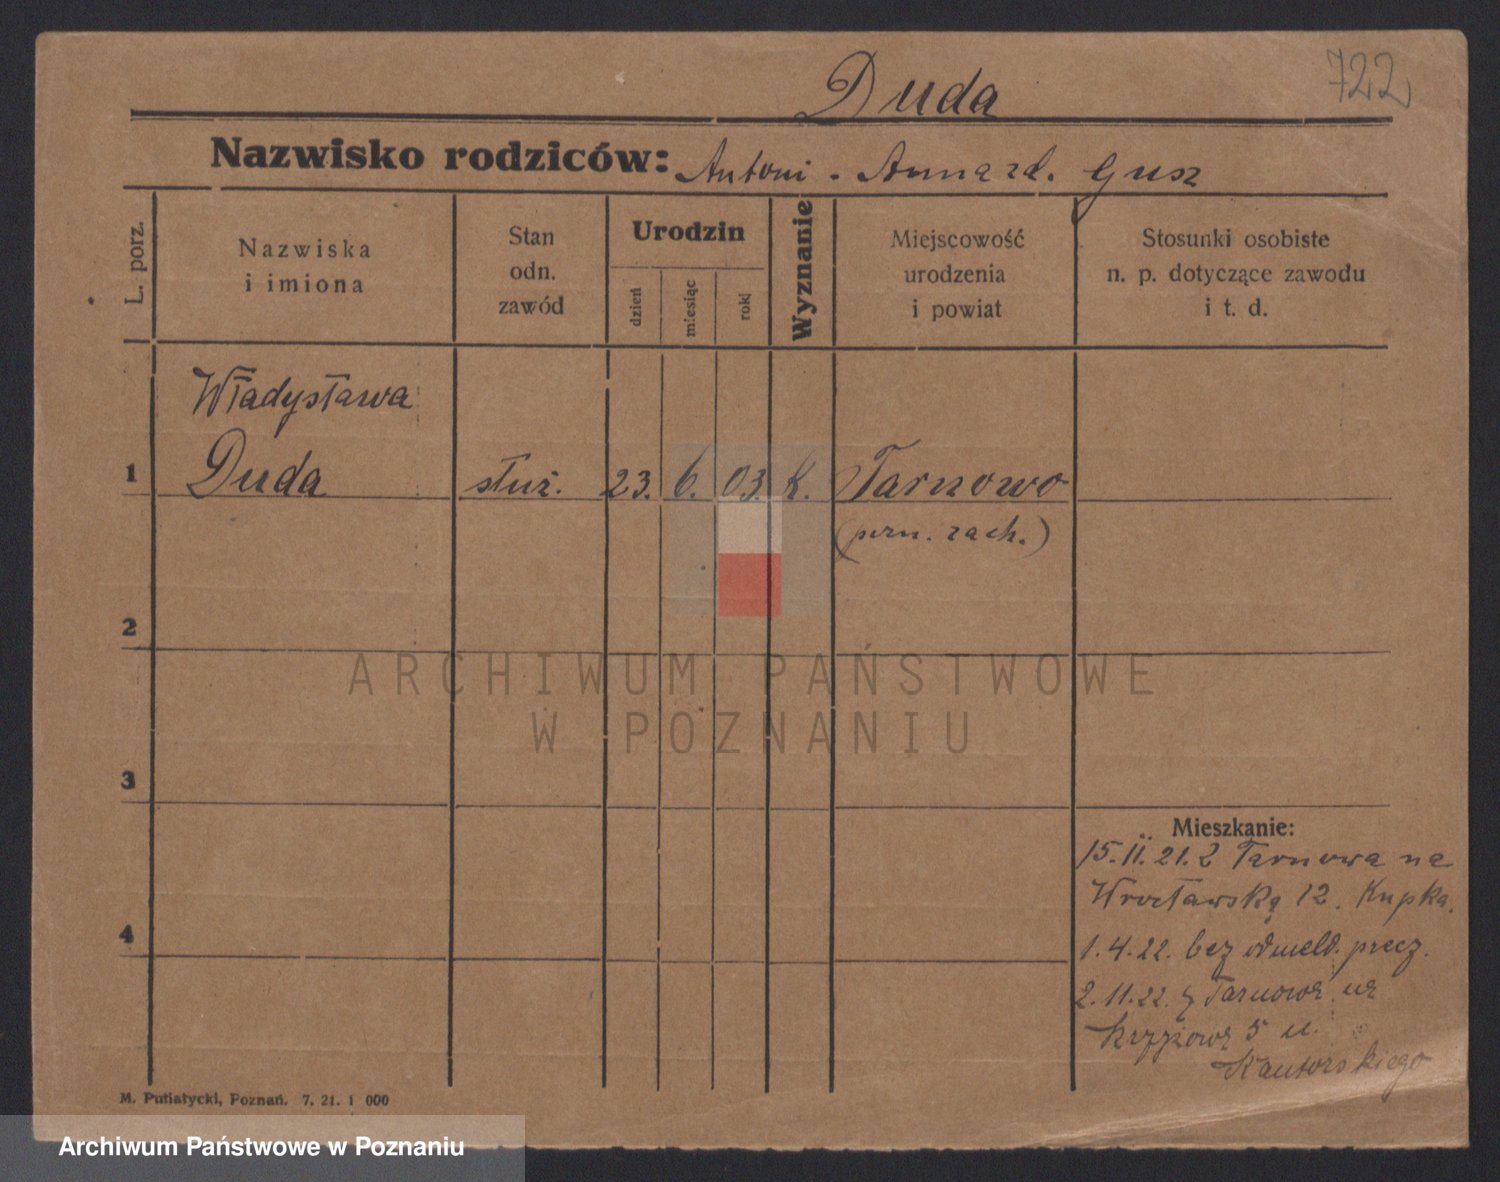 722
Duda
Nazwisko rodziców: Antoni - Anna zd. Gusz
L. porz.
Nazwiska
i imiona
Stan
odn.
zawód
Urodzin
dzień
miesiąc
rok
Wyznanie
Miejscowość
urodzenia
i powiat
Stosunki osobiste
n. p. dotyczące zawodu
i t. d.
Władysława
1 Duda służ. 23. 6. 03. k. Tarnowo
(pozn. zach.)
2
ARCHIWUM PAŃSTWOWE
W POZNANIU
3
Mieszkanie:
15.II.21. z Tarnowa na
Wrocławską 12. Kupka.
4
1.4.22. bez odmeld. precz.
2.11.22. z Tarnowa na
Krzyżową 5 u.
Kantorskiego
M. Putiatycki, Poznań. 7. 21. 1 000
Archiwum Państwowe w Poznaniu